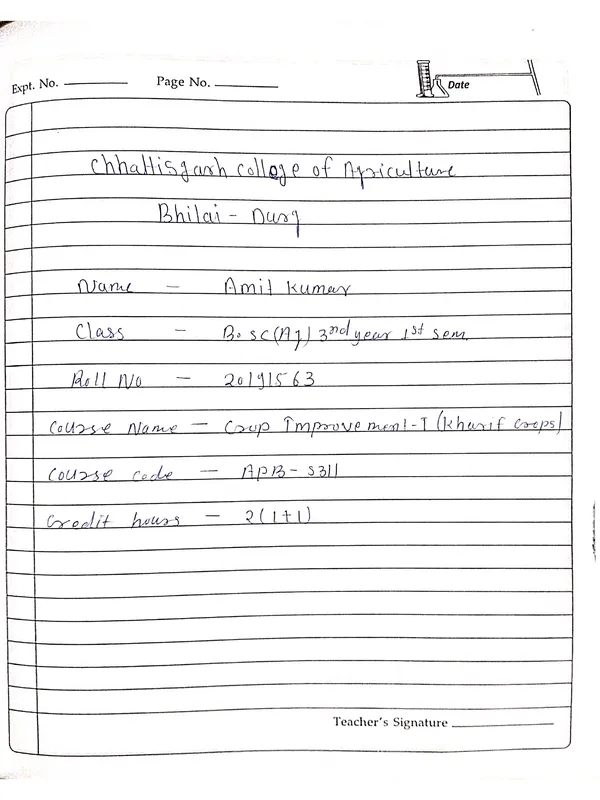 Expt. No. Page No. Date
Chhattisgarh college of Agriculture
Bhilai - Durg
Name - Amit Kumar
Class - B.sc(Ag) 3rd year 1st sem.
Roll No - 20191563
Course Name - Crop Improvement-I (Kharif crops)
Course code - APB-5311
Credit hours - 2(1+1)
Teacher's Signature